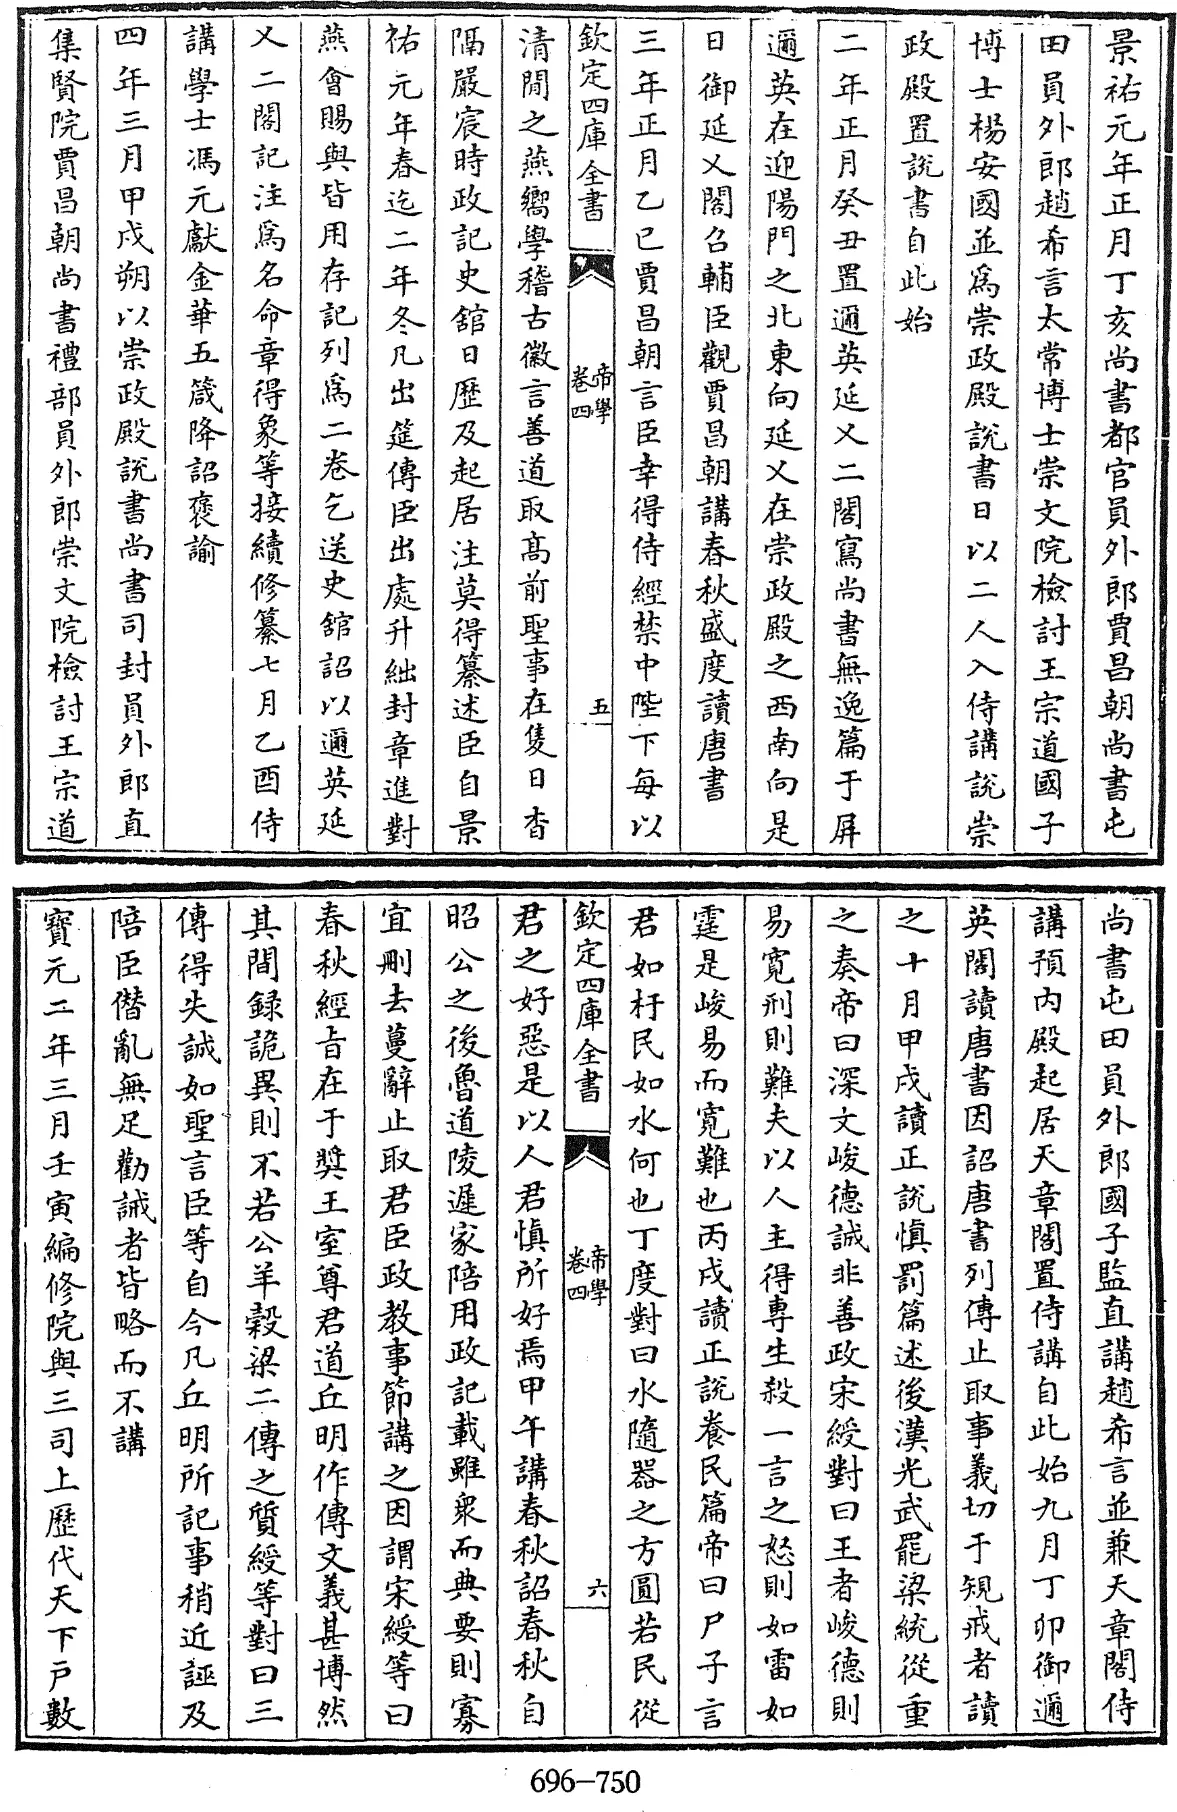 景祐元年正月丁亥尚書都官員外郎賈昌朝尚書屯
田員外郎趙希言太常博士崇文院檢討王宗道國子
博士楊安國並爲崇政殿說書日以二人入侍講說崇
政殿置說書自此始
二年正月癸丑置邇英延义二閣寫尚書無逸篇于屏
邇英在迎陽門之北東向延义在崇政殿之西南向是
日御延义閣召輔臣觀賈昌朝講春秋盛度讀唐書
三年正月乙巳賈昌朝言臣幸得侍經禁中陛下每以
欽定四庫全書
帝學
卷四
五
清閒之燕嚮學稽古徽言善道取高前聖事在隻日杳
隔嚴宸時政記史舘日歴及起居注莫得纂述臣自景
祐元年春迄二年冬凡出筵傳臣出處升絀封章進對
燕會賜與皆用存記列爲二卷乞送史舘詔以邇英延
义二閣記注爲名命章得象等接續修纂七月乙酉侍
講學士馮元獻金華五箴降詔褒諭
四年三月甲戍朔以崇政殿說書尚書司封員外郎直
集賢院賈昌朝尚書禮部員外郎崇文院檢討王宗道
尚書屯田員外郎國子監直講趙希言並兼天章閣侍
講預内殿起居天章閣置侍講自此始九月丁卯御邇
英閣讀唐書因詔唐書列傳止取事義切于規戒者讀
之十月甲戍讀正說慎罰篇述後漢光武罷梁統從重
之奏帝曰深文峻德誠非善政宋綬對曰王者峻德則
易寛刑則難夫以人主得專生殺一言之怒則如雷如
霆是峻易而寛難也丙戍讀正說養民篇帝曰尸子言
君如杅民如水何也丁度對曰水隨器之方圓若民從
欽定四庫全書
帝學
卷四
六
君之好惡是以人君慎所好焉甲午講春秋詔春秋自
昭公之後魯道陵遲家陪用政記載雖衆而典要則寡
宜刪去蔓辭止取君臣政教事節講之因謂宋綬等曰
春秋經旨在于奬王室尊君道丘明作傳文義甚博然
其間録詭異則不若公羊榖梁二傳之質綬等對曰三
傳得失誠如聖言臣等自今凡丘明所記事稍近誣及
陪臣僭亂無足勸誡者皆略而不講
寳元二年三月壬寅編修院與三司上歷代天下戸數
696-750